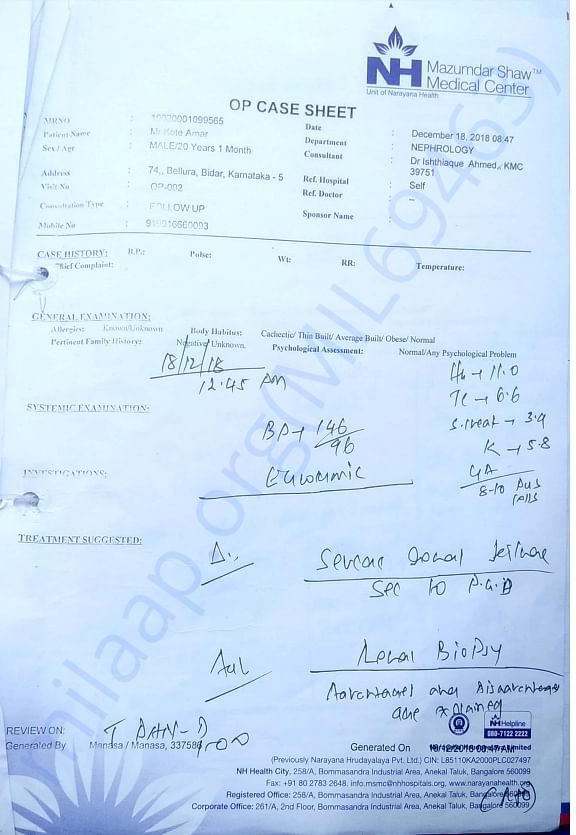 NH Mazumdar Shaw™ Medical Center
Unit of Narayana Health
OP CASE SHEET
MRNO : 10020001099565
Patient Name : Mr Kote Amar
Sex / Age : MALE/20 Years 1 Month
Address : 74,, Bellura, Bidar, Karnataka - 5
Visit No : OP-002
Consultation Type : FOLLOW UP
Mobile No : 919916660093
Date : December 18, 2018 08:47
Department : NEPHROLOGY
Consultant : Dr Ishthiaque Ahmed,, KMC 39751
Ref. Hospital : Self
Ref. Doctor : --
Sponsor Name :
CASE HISTORY: B.P.: Pulse: Wt: RR: Temperature:
Brief Complaint:
GENERAL EXAMINATION:
Allergies: Known/Unknown Body Habitus: Cachectic/ Thin Built/ Average Built/ Obese/ Normal
Pertinent Family History: Negative/ Unknown. Psychological Assessment: Normal/Any Psychological Problem
18/12/18
12.45 PM
Hb → 11.0
TC → 6.6
S.creat → 3.9
K → 5.8
8-10 Pus cells
SYSTEMIC EXAMINATION:
BP → 146/96
INVESTIGATIONS:
TREATMENT SUGGESTED:
Sec to
Renal Biopsy
Advantages and Disadvantages are explained
REVIEW ON:
Generated By Manasa / Manasa, 337586
Generated On
NH Helpline
080-7122 2222
(Previously Narayana Hrudayalaya Pvt. Ltd.) CIN: L85110KA2000PLC027497
NH Health City, 258/A, Bommasandra Industrial Area, Anekal Taluk, Bangalore 560099
Fax: +91 80 2783 2648. info.msmc@nhhospitals.org, www.narayanahealth.org
Registered Office: 258/A, Bommasandra Industrial Area, Anekal Taluk, Bangalore 560099
Corporate Office: 261/A, 2nd Floor, Bommasandra Industrial Area, Anekal Taluk, Bangalore 560099
milaap.org(MIL69463)